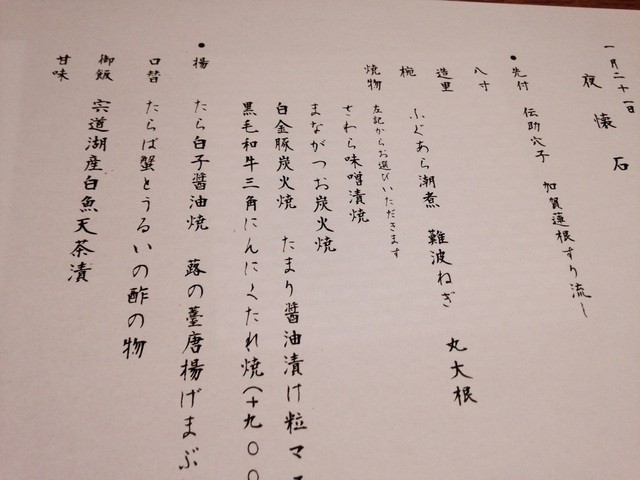 一月二十一日
夜懐石
先付 伝助穴子 加賀蓮根すり流し
八寸
造里
椀 ふぐあら潮煮 難波ねぎ 丸大根
焼物 左記からお選びいただきます
さわら味噌漬焼
まながつお炭火焼
白金豚炭火焼 たまり醤油漬け粒マス
黒毛和牛三角にんにくたれ焼(+九〇〇
揚 たら白子醤油焼 蕗の薹唐揚げまぶ
口替 たらば蟹とうるいの酢の物
御飯 宍道湖産白魚天茶漬
甘味